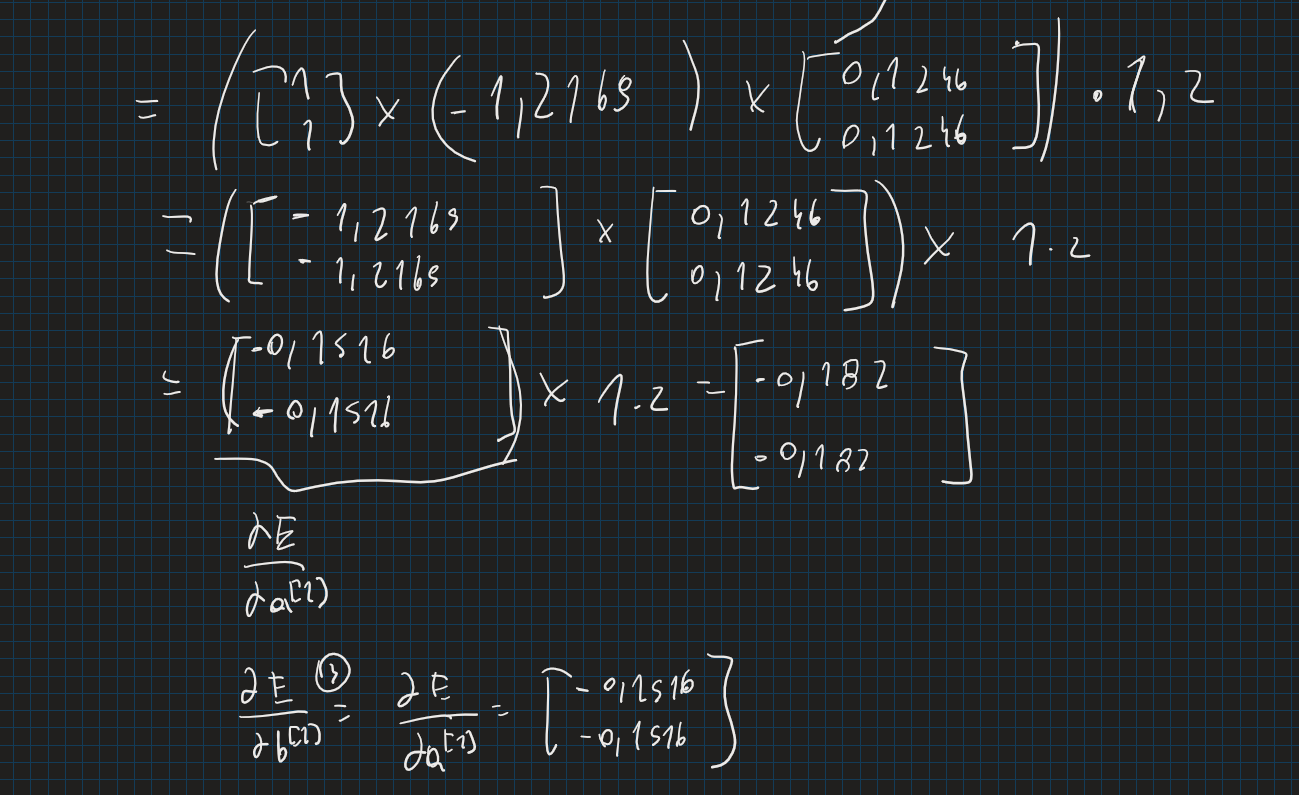 = ([1 1] × (-1,2169) × [0,1246 0,1246]) · 1,2
= ([-1,2169 -1,2169] × [0,1246 0,1246]) × 1.2
= ([-0,1516 -0,1516]) × 1.2 = [-0,182 -0,182]
∂E/∂a[1]
∂E/∂b[1] (3) = ∂E/∂a[1] = [-0,1516 -0,1516]